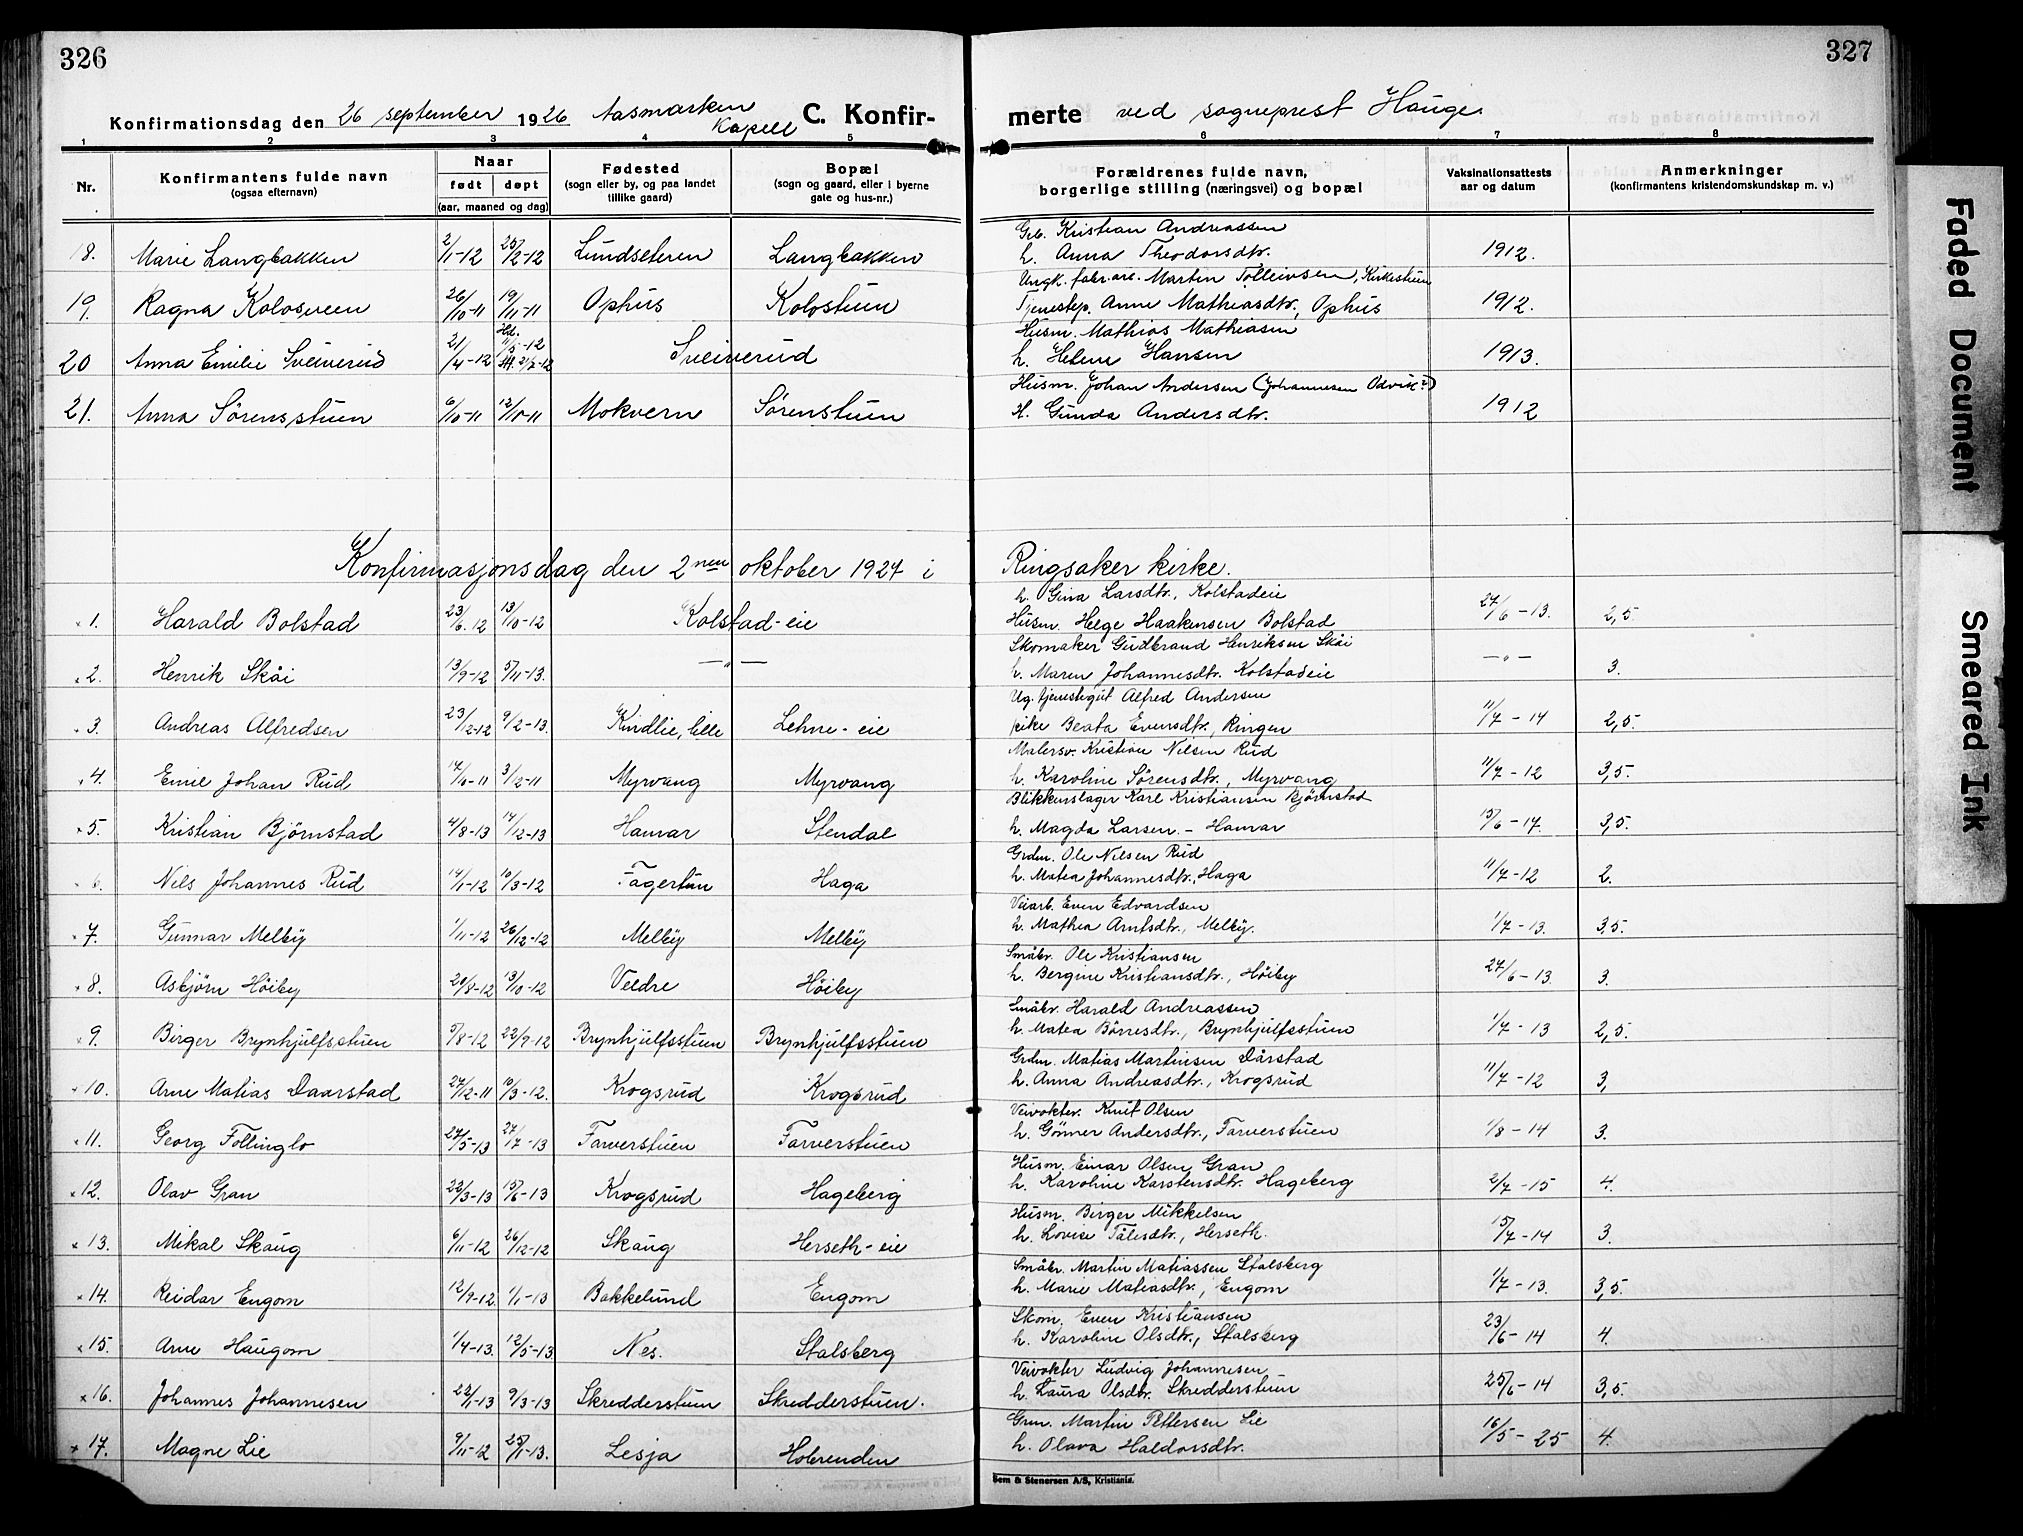 326
327
Konfirmationsdag den 26 september 1926 Aasmarken Kapell C. Konfir-
merte ved sogneprest Hauge.
1 2 3 4 5 6 7 8
Nr. Konfirmantens fulde navn (ogsaa efternavn) Naar født døpt (aar, maaned og dag) Fødested (sogn eller by, og paa landet tillike gaard) Bopæl (sogn og gaard, eller i byerne gate og hus-nr.) Forældrenes fulde navn, borgerlige stilling (næringsvei) og bopæl Vaksinationsattests aar og datum Anmerkninger (konfirmantens kristendomskundskap m. v.)
Grb. Kristian Andreassen
18. Marie Langbakken 2/11-12 25/2-12 Lundseteren Langbakken h. Anna Theodorsdtr. 1912.
Ungk. fabr.arb. Martin Tolleivsen, Kirkestuen
19. Ragna Kolosveen 26/10-11 19/11-11 Ophus Kolostuen Tjenestep. Anne Mathiasdtr., Ophus 1912.
Husm. Mathias Mathiasen
20 Anna Emilie Sveiverud 21/4-12 Hd. 11/5-12 Sveiverud h. Helene Hansen 1913.
Husm. Johan Andersen (Johannesen Odvik?)
21. Anna Sørensstuen 6/10-11 12/10-11 Mokvern Sørenstuen H. Gunda Andersdtr. 1912
Konfirmasjonsdag den 2nen oktober 1927 i Ringsaker kirke.
h. Gina Larsdtr., Kolstadeie
1. Harald Bolstad 23/6-12 13/10-12 Kolstad-eie Husm. Helge Haakensen Bolstad 27/6-13. 2,5.
Skomaker Gudbrand Henriksen Skåi
2. Henrik Skåi 13/9-12 5/11-13. —"— h. Maren Johannesdtr. Kolstadeie —"— 3.
Ug. tjenestegut Alfred Andersen
3. Andreas Alfredsen 23/12-12 9/2-13. Kindlie, lille Lehne-eie pike Beata Evensdtr., Ringen 11/7-14 2,5.
Malersv. Kristian Nilsen Rud
4. Emil Johan Rud 3/12-11 Myrvang Myrvang h. Karoline Sørensdtr., Myrvang 11/7-12 3,5.
Blikkenslager Karl Kristiansen Bjørnstad
5. Kristian Bjørnstad 4/8-13 14/12-13 Hamar Stendal h. Magda Larsen - Hamar 15/6-17. 3,5.
Grdm. Ole Nilsen Rud
6. Nils Johannes Rud 14/1-12 10/3-12 Fagertun Haga h. Matea Johannesdtr., Haga 11/7-12 2.
Veiarb. Even Edvardsen
7. Gunnar Melby 1/11-12 26/12-12 Melby Melby h. Mathea Arntsdtr., Melby. 1/7-13. 3,5.
Småbr. Ole Kristiansen
8. Asbjørn Høiby 20/8-12 13/10-12 Veldre Høiby h. Bergine Kristiansdtr., Høiby 27/6-13 3.
Småbr. Harald Andreassen
9. Birger Brynhjulfsstuen 5/8-12 22/9-12 Brynhjulfsstuen Brynhjulfsstuen h. Matea Børresdtr., Brynhjulfsstuen 1/7-13 2,5.
Grdm. Matias Martinsen Dårstad
10. Arne Matias Daarstad 27/12-11 10/3-12. Krogsrud Krogsrud h. Anna Andreasdtr., Krogsrud 11/7-12 3,
Veivokter. Knut Olsen
11. Georg Follinglo 27/5-13 27/7-13 Farverstuen Farverstuen h. Gunner Andersdtr., Farverstuen 1/8-14 3.
Husm. Einar Olsen Gran
12. Olav Gran 22/3-13 15/6-13 Krogsrud Hageberg h. Karoline Karstensdtr. Hageberg 2/7-15 4.
Husm. Birger Mikkelsen
13. Mikal Skaug 6/11-12 26/12-12 Skaug Herseth-eie h. Lovise Tålesdtr., Herseth. 15/7-14 3.
Småbr. Martin Matiassen Stalsberg
14. Reidar Engom 12/9-12. 1/1-13 Bakkelund Engom h. Marie Matiasdtr., Engom 1/7-13. 3,5.
Skom. Even Kristiansen
15. Arne Haugom 1/4-13. 12/5-13. Nes. Stalsberg h. Karoline Olsdtr., Stalsberg 23/6-14 4.
Veivokter Ludvig Johannesen
16. Johannes Johannesen 22/1-13 9/3-13 Skredderstuen Skredderstuen. h. Laura Olsdtr. Skredderstuen 25/6-14 3,5.
Grm. Martin Pettersen Lie
17. Magne Lie 9/11-12 25/1-13. Lesja Holerenden h. Olava Haldorsdtr. 16/5-25 4.
Sem & Stenersen A/S, Kristiania.
Faded Document
Smeared Ink